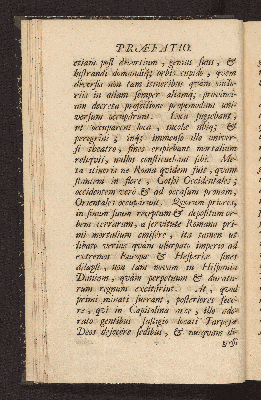 PRÆFATIO.
etiam post divortium, genius fuit, &
lustrandi domandique orbis cupido, quem
diversis non tam itineribus quàm victo-
riis in aliam semper aliamque, provinci-
am decreta profectione propemodum uni-
versum occupârunt. Loca fugiebant,
ut occuparent loca, incolæ ubique &
peregrini; inque immenso illo univer-
si theatro, fines eripiebant mortalium
reliquis, nullos constituebant sibi. Me-
ta itineris ne Roma quidem fuit, quum
stantem in flore, Gothi Occidentales;
occidentem verò & ad occasum pronam,
Orientales occuparunt. Quorum priores,
in sinum suum receptum & depositum or-
bem terrarum, a servitute Romana pri-
mi mortalium emisêre, ita tamen ut
libato verius quàm usurpato imperio ad
extremos Europæ & Hesperiæ fines
dilapsi, non tam novum in Hispania
Daniam, quàm perpetuum & duratu-
rum regnum excitârint. At, quod
primi minati fuerant, posteriores fece-
re, qui in Capitolina arce, illo ado-
rato gentibus fastigio locati Tarpejos
Deos dejecere sedibus, & nusquam di-